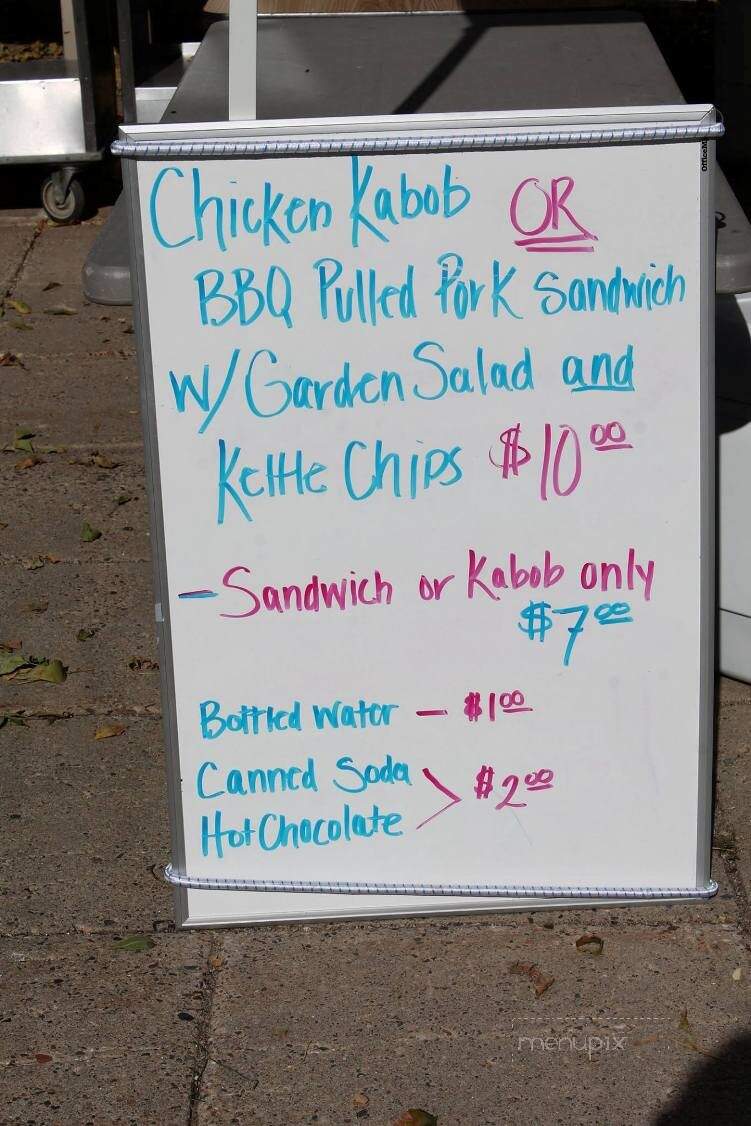 Chicken Kabob OR
BBQ Pulled Pork Sandwich
W/ Garden Salad and
Kettle Chips $10.00
- Sandwich or Kabob only
$7.00
Bottled Water - $1.00
Canned Soda > $2.00
Hot Chocolate
menupix